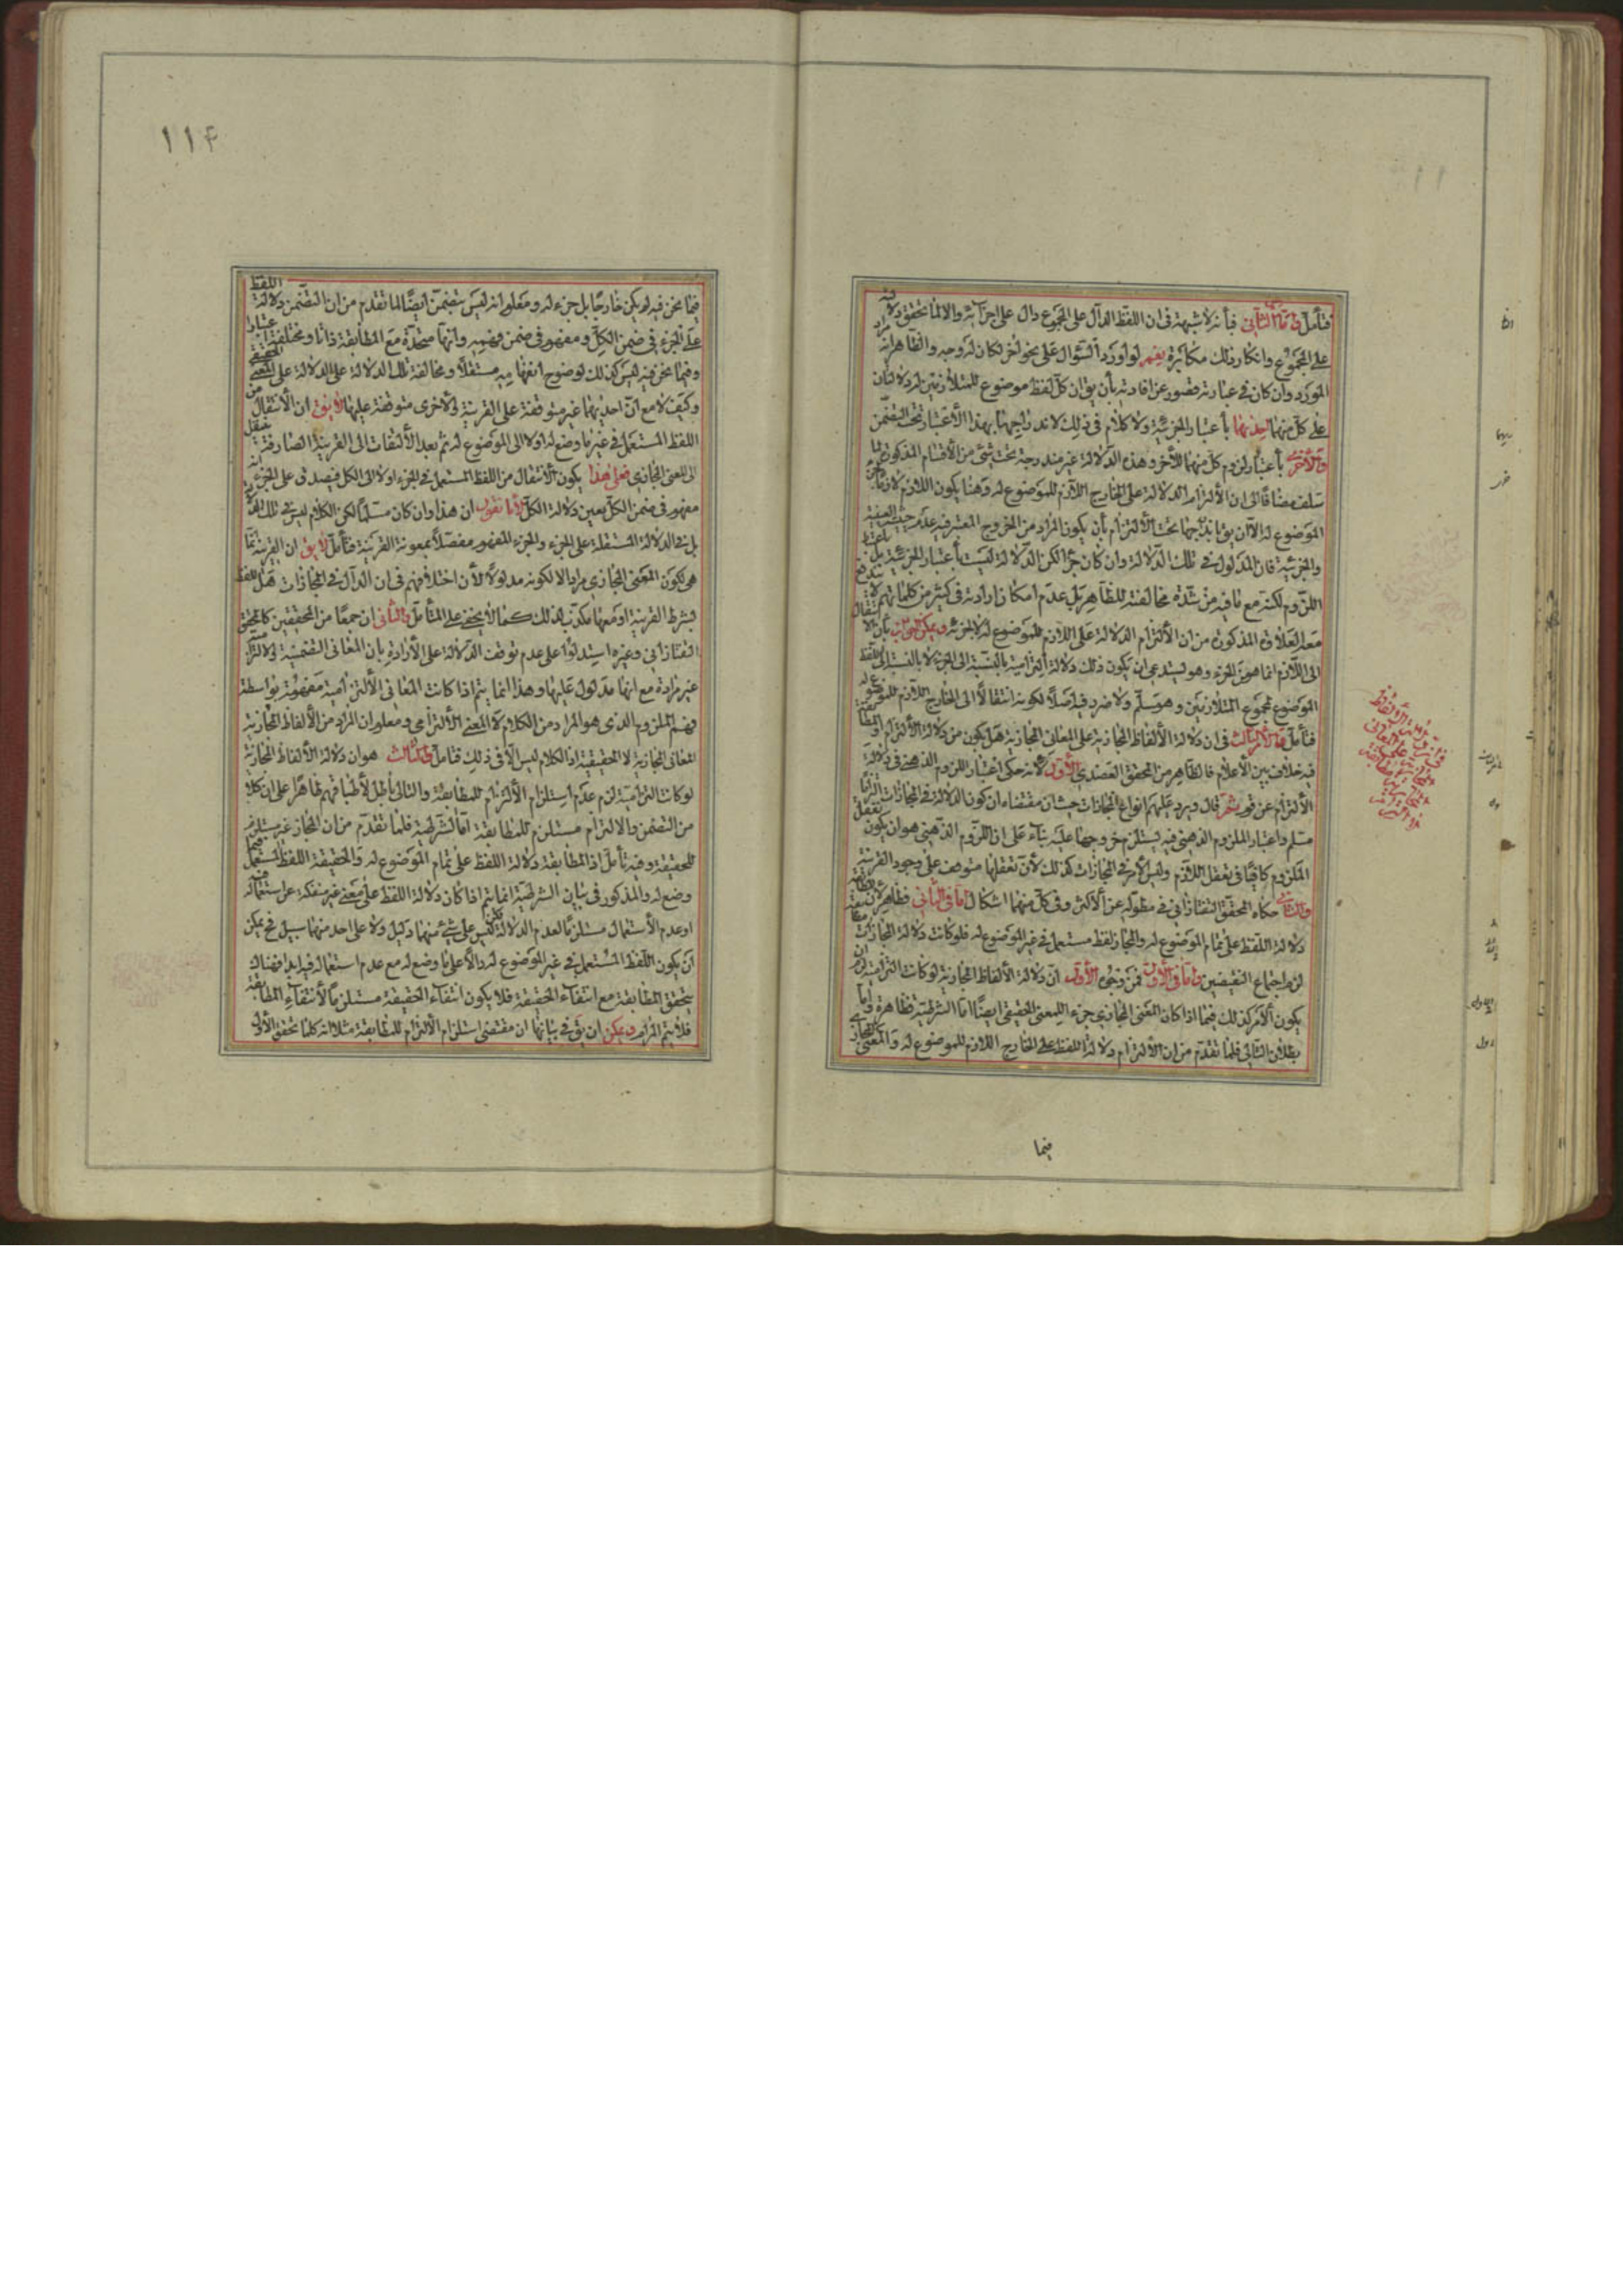 فتأمل واما الثاني فبأنه لا شبهة في ان اللفظ الدال على المجموع دال على اجزائه والا لما تحقق دلالته
على المجموع وانكار ذلك مكابرة نعم لو اورد السؤال على نحو اخر لكان له وجه والظاهر انه مراد
المورد وان كان في عبارته قصور عن افادته بأن يق ان كل لفظ موضوع للمتلازمين له دلالتان
على كل منهما احديهما بأعتبار الجزئية ولا كلام في ذلك لاندراجهما بهذا الأعتبار تحت التضمن
والأخرى بأعتبار لزوم كل منهما للأخر وهذه الدلالة غير مندرجة تحت شئ من الأقسام المذكورة لما
سلف مضافا الى ان الألتزام الدلالة على الخارج اللازم للموضوع له وهنا يكون اللازم
الموضوع له الا ان يق بأندراجها تحت الألتزام بأن يكون المراد من الخروج المعتبر فيه عدم حيث العينية
والجزئية فان المدلول في تلك الدلالة وان كان جزأ لكن الدلالة ليست بأعتبار الجزئية بل بأعتبار
اللزوم لكنه مع ما فيه من شدة مخالفته للظاهر بل عدم امكان ارادته في كثير من كلماتهم
معه العلاوة المذكورة من ان الألتزام الدلالة على اللازم للموضوع له لا لجزئه ويمكن الجواب بأن الأنتقال
الى اللازم انما هو من الجزء وهو يستدعى ان يكون ذلك دلالة التزامية بالنسبة الى الجزء لا بالنسبة الى اللفظ
الموضوع لمجموع المتلازمين وهو مسلم ولا ضرر فيه اصلا لكونه انتقالا الى الخارج اللازم للموضوع له
فتأمل والأمر الثالث في ان دلالة الألفاظ المجازية على المعاني المجازية هل يكون من دلالة الألتزام او المطابقة
فيه خلاف بين الأعلام فالظاهر من المحقق العضدي الأول لانه حكى اعتبار اللزوم الذهنى في دلالة
الألتزام عن قوم ثم قال ويرد عليهم انواع المجازات حيث ان مقتضاه ان كون الدلالة في المجازات التزاما
مسلم واعتبار الملزوم الذهني فيه يستلزم خروجها عليه بناء على ان اللزوم الذهني هو ان يكون تعقل
الملزوم كافيا في تعقل اللازم وليس الأمر في المجازات كذلك لأن تعقلها متوقف على وجود القرينة
والثاني حكاه المحقق التفتازاني في مطوله عن الأكثر وفي كل منهما اشكال اما في الثاني فظاهر لأن المطابقة
دلالة اللفظ على تمام الموضوع له والمجاز لفظ مستعمل في غير الموضوع له فلو كانت دلالة المجازات مطابقة
لزم اجتماع النقيضين واما في الأول فمن وجوه الأول ان دلالة الألفاظ المجازية لو كانت التزامية لزم ان
يكون الأمر كذلك فيما اذا كان المعنى المجازي جزء للمعنى الحقيقي ايضا اما الشرطية فظاهرة واما
بطلان التالى فلما تقدم من ان الألتزام دلالة اللفظ على الخارج اللازم للموضوع له والمعنى المجازي
فيما
١١۴
فيما نحن فيه لم يكن خارجا بل جزء له ومعلوم انه ليس بتضمن ايضا لما تقدم من ان التضمن دلالة اللفظ
على الجزء في ضمن الكل ومفهوم في ضمن فهمه وانها متحدة مع المطابقة ذاتا ومختلفة اعتبارا
وفيما نحن فيه ليس كذلك لوضوح انفهامه مستقلا ومخالفة تلك الدلالة على الدلالة على المعنى الحقيقي
وكيف لا مع ان احديهما غير متوقفة على القرينة والأخرى متوقفة عليها لا يق ان الأنتقال من
اللفظ المستعمل في غير ما وضع له اولا الى الموضوع له ثم بعد الألتفات الى القرينة الصارفة ينتقل
الى المعنى المجازي فعلى هذا يكون الأنتقال من اللفظ المستعمل في الجزء اولا الى الكل فيصدق على الجزء انه
مفهوم في ضمن الكل بعين دلالة الكل لأنا نقول ان هذا وان كان مسلما لكن الكلام ليس في تلك الدلالة
بل في الدلالة المستقلة على الجزء والجزء المفهوم مفصلا بمعونة القرينة فتأمل لا يق ان القرينة انما
هي لكون المعنى المجازي مرادا لا لكونه مدلولا لأن اختلافهم في ان الدال في المجازات هل اللفظ
بشرط القرينة او معها مكذب لذلك كما لا يخفى على المتأمل والثاني ان جمعا من المحققين كالمحقق
التفتازاني وغيره استدلوا على عدم توقف الدلالة على الأرادة بان المعاني التضمنية والألتزامية
غير مرادة مع انها مدلول عليها وهذا انما يتم اذا كانت المعاني الألتزامية مفهومة بواسطة
فهم الملزوم الذي هو المراد من الكلام لا المعنى الألتزامي ومعلوم ان المراد من الألفاظ المجازية
المعاني المجازية لا الحقيقية اذ الكلام ليس الا في ذلك فتأمل والثالث هو ان دلالة الألفاظ المجازية
لو كانت التزامية لزم عدم استلزام الألتزام للمطابقة والتالى باطل لأطباقهم ظاهرا على ان كلا
من التضمن والالتزام مستلزم للمطابقة اما الشرطية فلما تقدم من ان المجاز غير مستلزم
للحقيقة وفيه تأمل اذ المطابقة دلالة اللفظ على تمام الموضوع له والحقيقة اللفظ المستعمل فيما
وضع له والمذكور في بيان الشرطية انما يتم اذا كان دلالة اللفظ على معنى غير منفكة عن استعماله فيه
او عدم الأستعمال مستلزما لعدم الدلالة لكن ليس على شئ منهما دليل ولا على احد منهما سبيل فح يمكن
ان يكون اللفظ المستعمل في غير الموضوع له دالا على ما وضع له مع عدم استعماله فيه ابدا فهناك
يتحقق المطابقة مع انتفاء الحقيقة فلا يكون انتفاء الحقيقة مستلزما لأنتفاء المطابقة
فلا يتم المرام ويمكن ان يق في بيانها ان مقتضى استلزام الألتزام للمطابقة مثلا انه كلما تحقق الأول